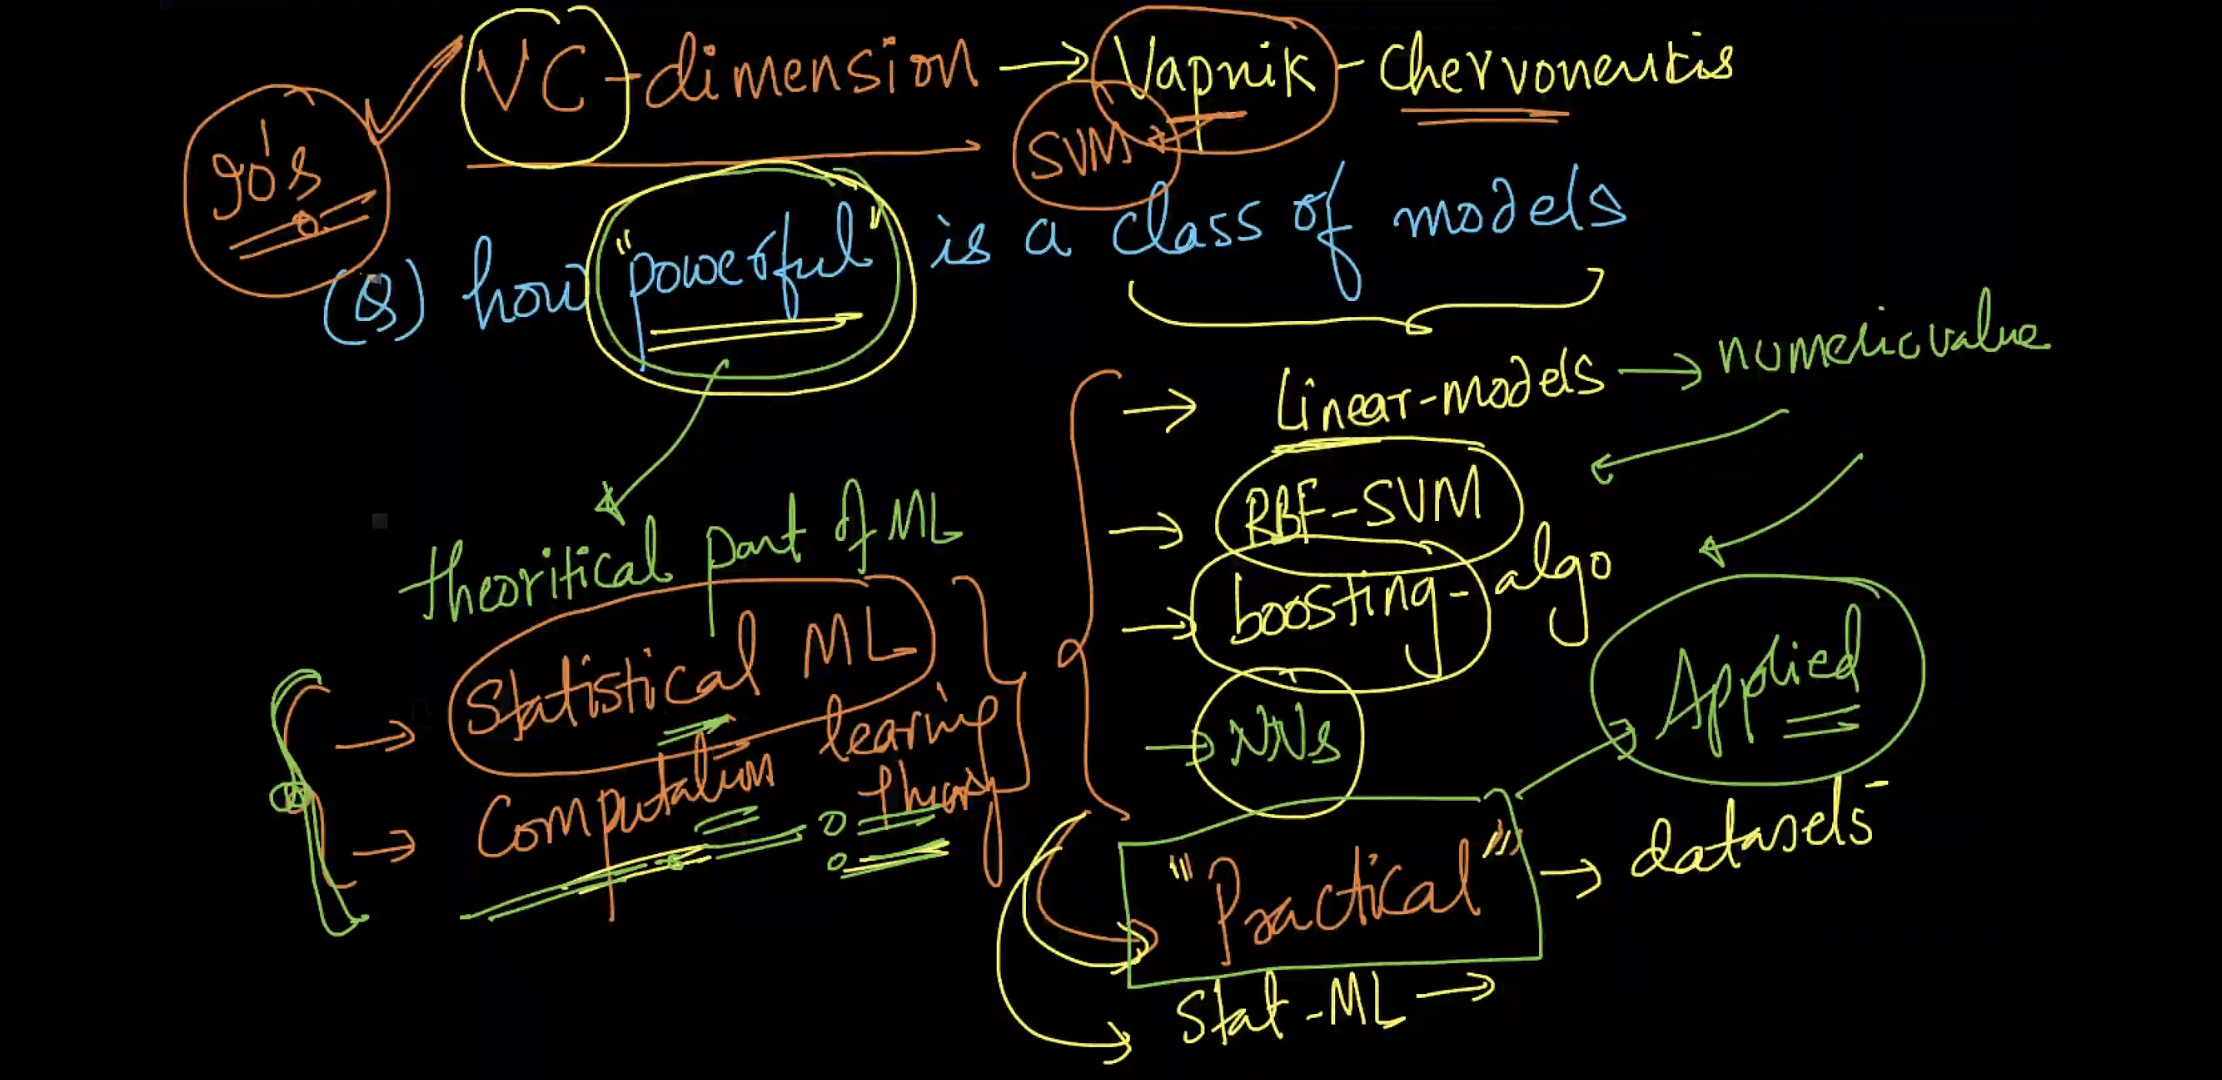 VC-dimension → Vapnik - Chervonenkis
90's
SVM
(Q) how "powerful" is a class of models
→ Linear-models → numeric value
→ RBF-SVM
→ boosting-algo
→ NNs
theoritical part of ML
→ Statistical ML
→ Computation learning theory
Applied
"Practical" → datasets
Stat-ML →